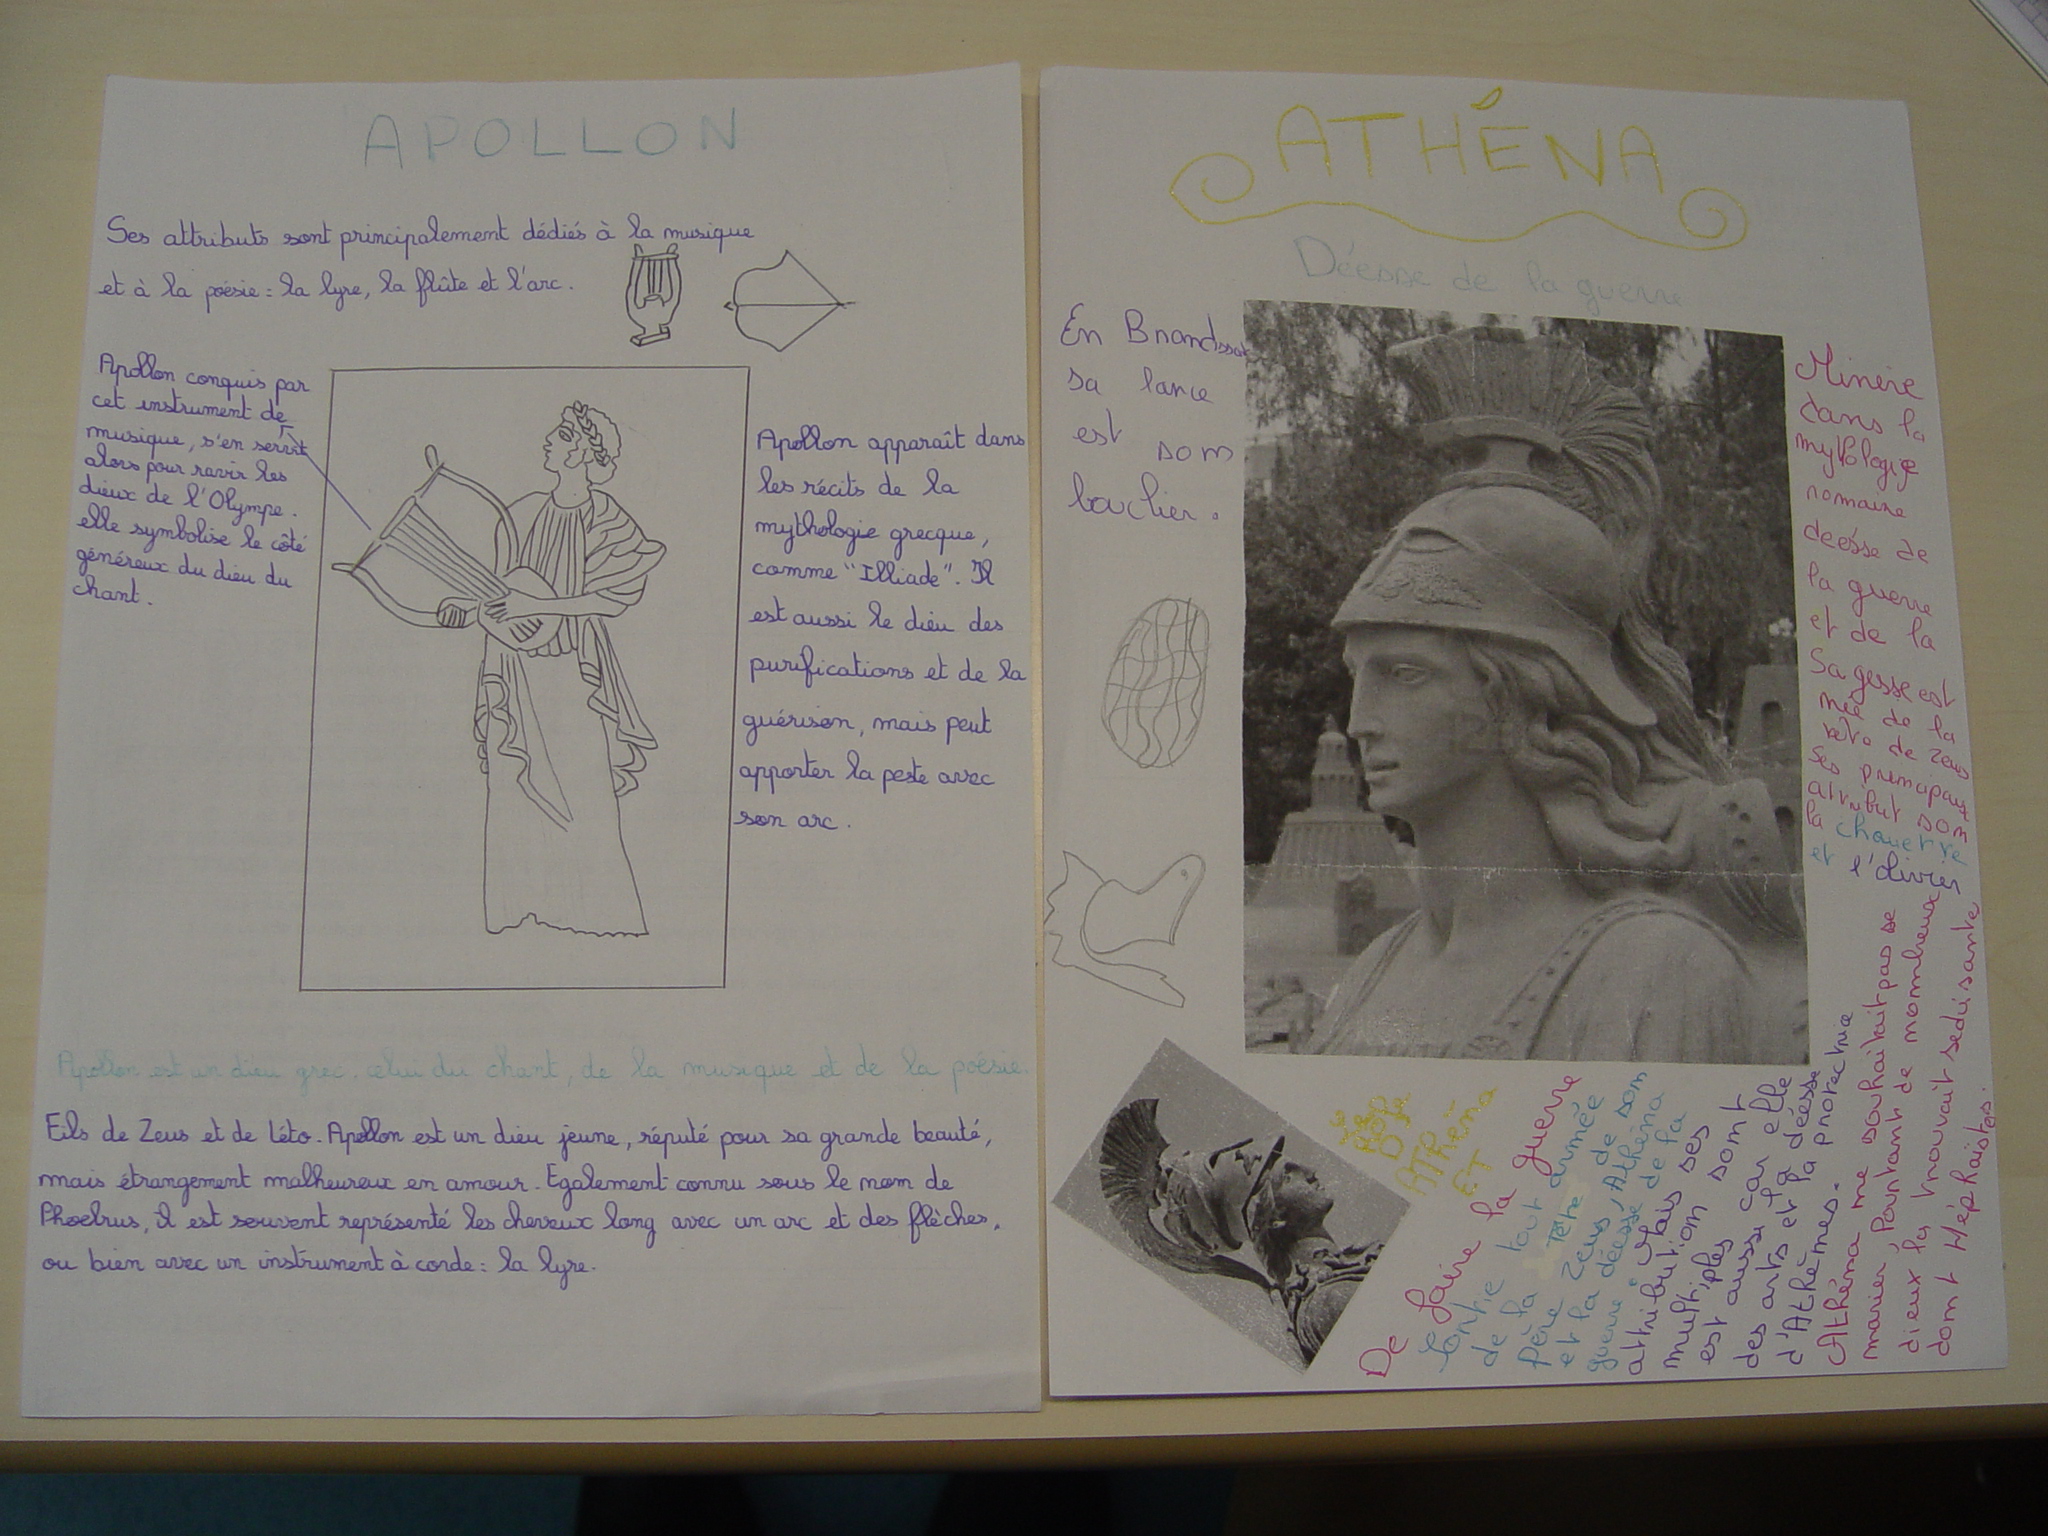 APOLLON
Ses attributs sont principalement dédiés à la musique
et à la poésie : la lyre, la flûte et l'arc.
Apollon conquis par
cet instrument de
musique, s'en servit
alors pour ravir les
dieux de l'Olympe.
elle symbolise le côté
généreux du dieu du
chant.
Apollon apparaît dans
les récits de la
mythologie grecque,
comme "Illiade". Il
est aussi le dieu des
purifications et de la
guérison, mais peut
apporter la peste avec
son arc.
Apollon est un dieu grec. celui du chant, de la musique et de la poésie.
Fils de Zeus et de Léto. Apollon est un dieu jeune, réputé pour sa grande beauté,
mais étrangement malheureux en amour. Egalement connu sous le nom de
Phoebus, il est souvent représenté les cheveux long avec un arc et des flèches,
ou bien avec un instrument à corde : la lyre.
ATHÉNA
Déesse de la guerre
En Brandssat
sa lance
est som
bouclier.
Minère
dans la
mythologie
romaine
deésse de
la guerre
et de la
Sagesse est
née de la
tête de Zeus
ses principaux
attribut som
la chouette
et l'olivier
ATHéna
ET
De faire la guerre
Sortie tout armée
de la Tête de som
père Zeus, Athéna
et la déesse de la
guerre. Mais ses
attributiom somt
multiples car elle
est aussi la déésse
des arts et la protectrice
d'Athèmes.
Athéna me souhaitait pas se
marier, Pourtant de mombreux
dieux la trouvait seduisante
domt Héphaistos.